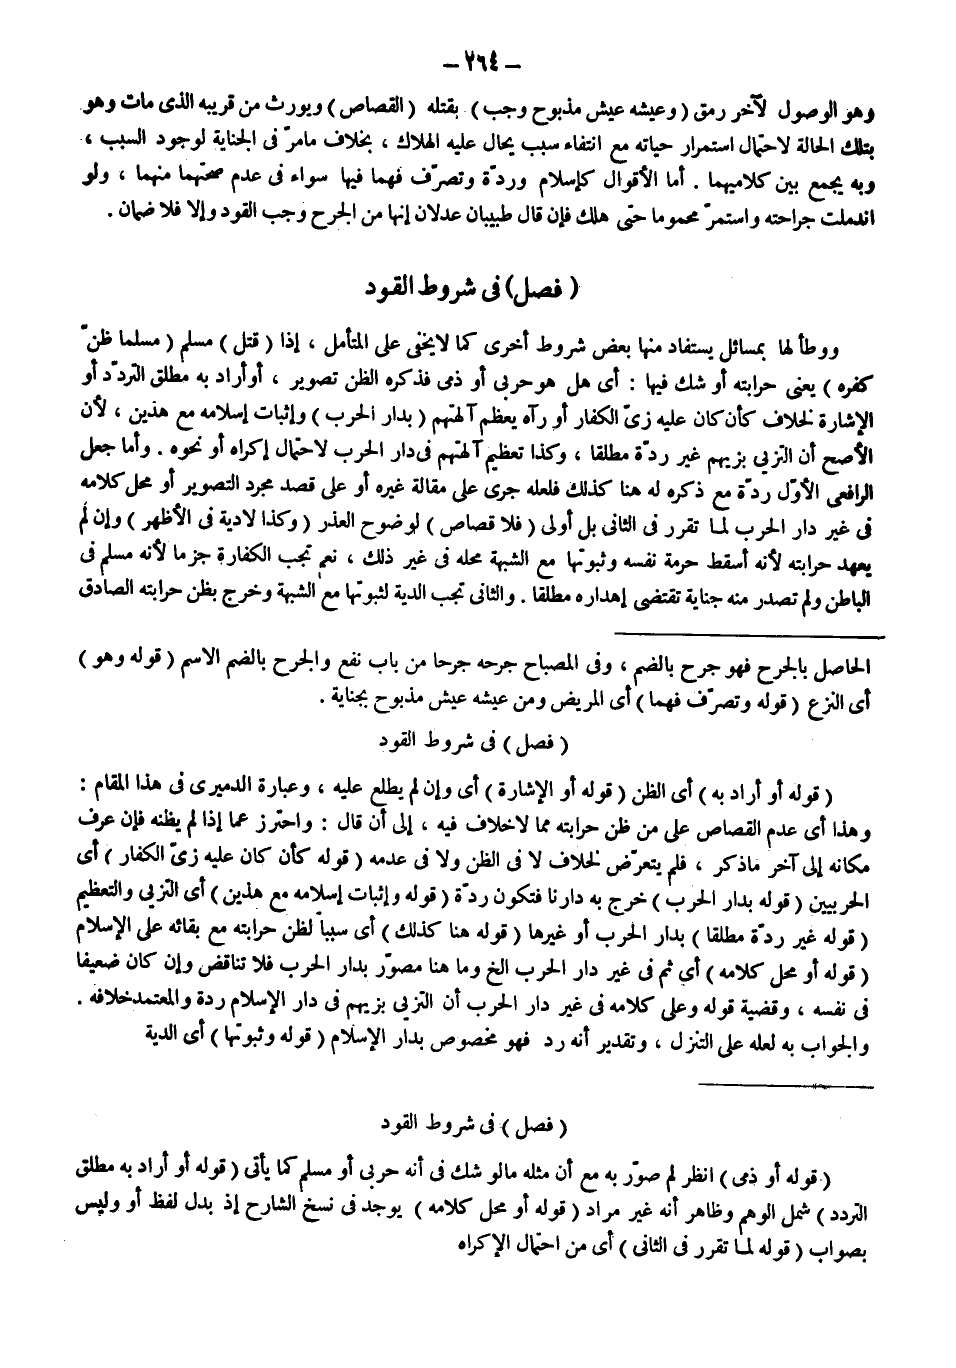 – ٢٦٤ –
وهو الوصول لآخر رمق ( وعيشه عيش مذبوح وجب ) بقتله ( القصاص ) ويورث من قريبه الذى مات وهو
بتلك الحالة لاحتمال استمرار حياته مع انتفاء سبب يحال عليه الهلاك ، بخلاف مامرّ فى الجناية لوجود السبب ،
وبه يجمع بين كلاميهما . أما الأقوال كإسلام وردّة وتصرّف فهما فيها سواء فى عدم صحتهما منهما ، ولو
اندملت جراحته واستمرّ محموما حتى هلك فإن قال طبيبان عدلان إنها من الجرح وجب القود وإلا فلا ضمان .
( فصل) فى شروط القود
ووطأ لها بمسائل يستفاد منها بعض شروط أخرى كما لايخفى على المتأمل ، إذا ( قتل ) مسلم ( مسلما ظنّ
كفره ) يعنى حرابته أو شك فيها : أى هل هو حربى أو ذمى فذكره الظن تصوير ، أوأراد به مطلق التردّد أو
الإشارة لخلاف كأن كان عليه زىّ الكفار أو رآه يعظم آلهتهم ( بدار الحرب ) وإثبات إسلامه مع هذين ، لأن
الأصح أن التزيى بزيهم غير ردّة مطلقا ، وكذا تعظيم آلهتهم فى دار الحرب لاحتمال إكراه أو نحوه . وأما جعل
الرافعى الأوّل ردّة مع ذكره له هنا كذلك فلعله جرى على مقالة غيره أو على قصد مجرد التصوير أو محل كلامه
فى غير دار الحرب لما تقرر فى الثانى بل أولى ( فلا قصاص ) لوضوح العذر ( وكذا لادية فى الأظهر ) وإن لم
يعهد حرابته لأنه أسقط حرمة نفسه وثبوتها مع الشبهة محله فى غير ذلك ، نعم تجب الكفارة جزما لأنه مسلم فى
الباطن ولم تصدر منه جناية تقتضى إهداره مطلقا . والثانى تجب الدية لثبوتها مع الشبهة وخرج بظن حرابته الصادق
الحاصل بالجرح فهو جرح بالضم ، وفى المصباح جرحه جرحا من باب نفع والجرح بالضم الاسم ( قوله وهو )
أى النزع ( قوله وتصرّف فهما ) أى المريض ومن عيشه عيش مذبوح بجناية .
( فصل ) فى شروط القود
( قوله أو أراد به ) أى الظن ( قوله أو الإشارة ) أى وإن لم يطلع عليه ، وعبارة الدميرى فى هذا المقام :
وهذا أى عدم القصاص على من ظن حرابته مما لاخلاف فيه ، إلى أن قال : واحترز عما إذا لم يظنه فإن عرف
مكانه إلى آخر ماذكر ، فلم يتعرّض لخلاف لا فى الظن ولا فى عدمه ( قوله كأن كان عليه زىّ الكفار ) أى
الحربيين ( قوله بدار الحرب ) خرج به دارنا فتكون ردّة ( قوله وإثبات إسلامه مع هذين ) أى التزيى والتعظيم
( قوله غير ردّة مطلقا ) بدار الحرب أو غيرها ( قوله هنا كذلك ) أى سببا لظن حرابته مع بقائه على الإسلام
( قوله أو محل كلامه ) أي ثم فى غير دار الحرب الخ وما هنا مصوّر بدار الحرب فلا تناقض وإن كان ضعيفا
فى نفسه ، وقضية قوله وعلى كلامه فى غير دار الحرب أن التزيى بزيهم فى دار الإسلام ردة والمعتمدخلافه .
والجواب به لعله على التنزل ، وتقدير أنه رد فهو مخصوص بدار الإسلام ( قوله وثبوتها ) أى الدية
( فصل ) فى شروط القود
( قوله أو ذمى ) انظر لم صوّر به مع أن مثله مالو شك فى أنه حربى أو مسلم كما يأتى ( قوله أو أراد به مطلق
التردد ) شمل الوهم وظاهر أنه غير مراد ( قوله أو محل كلامه ) يوجد فى نسخ الشارح إذ بدل لفظ أو وليس
بصواب ( قوله لما تقرر فى الثانى ) أى من احتمال الإكراه